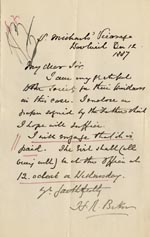 St Michaels' Vicarage
Bowlish Dec 12
1887
My dear Sir,
I am very grateful
to the Society for their kindness
in this case. I enclose a
paper signed by the Father which
I hope will suffice.
I will engage that 5/- is
paid. The girl shall (all
being well) be at the office at
12. o'clock on Wednesday.
Yrs faithfully